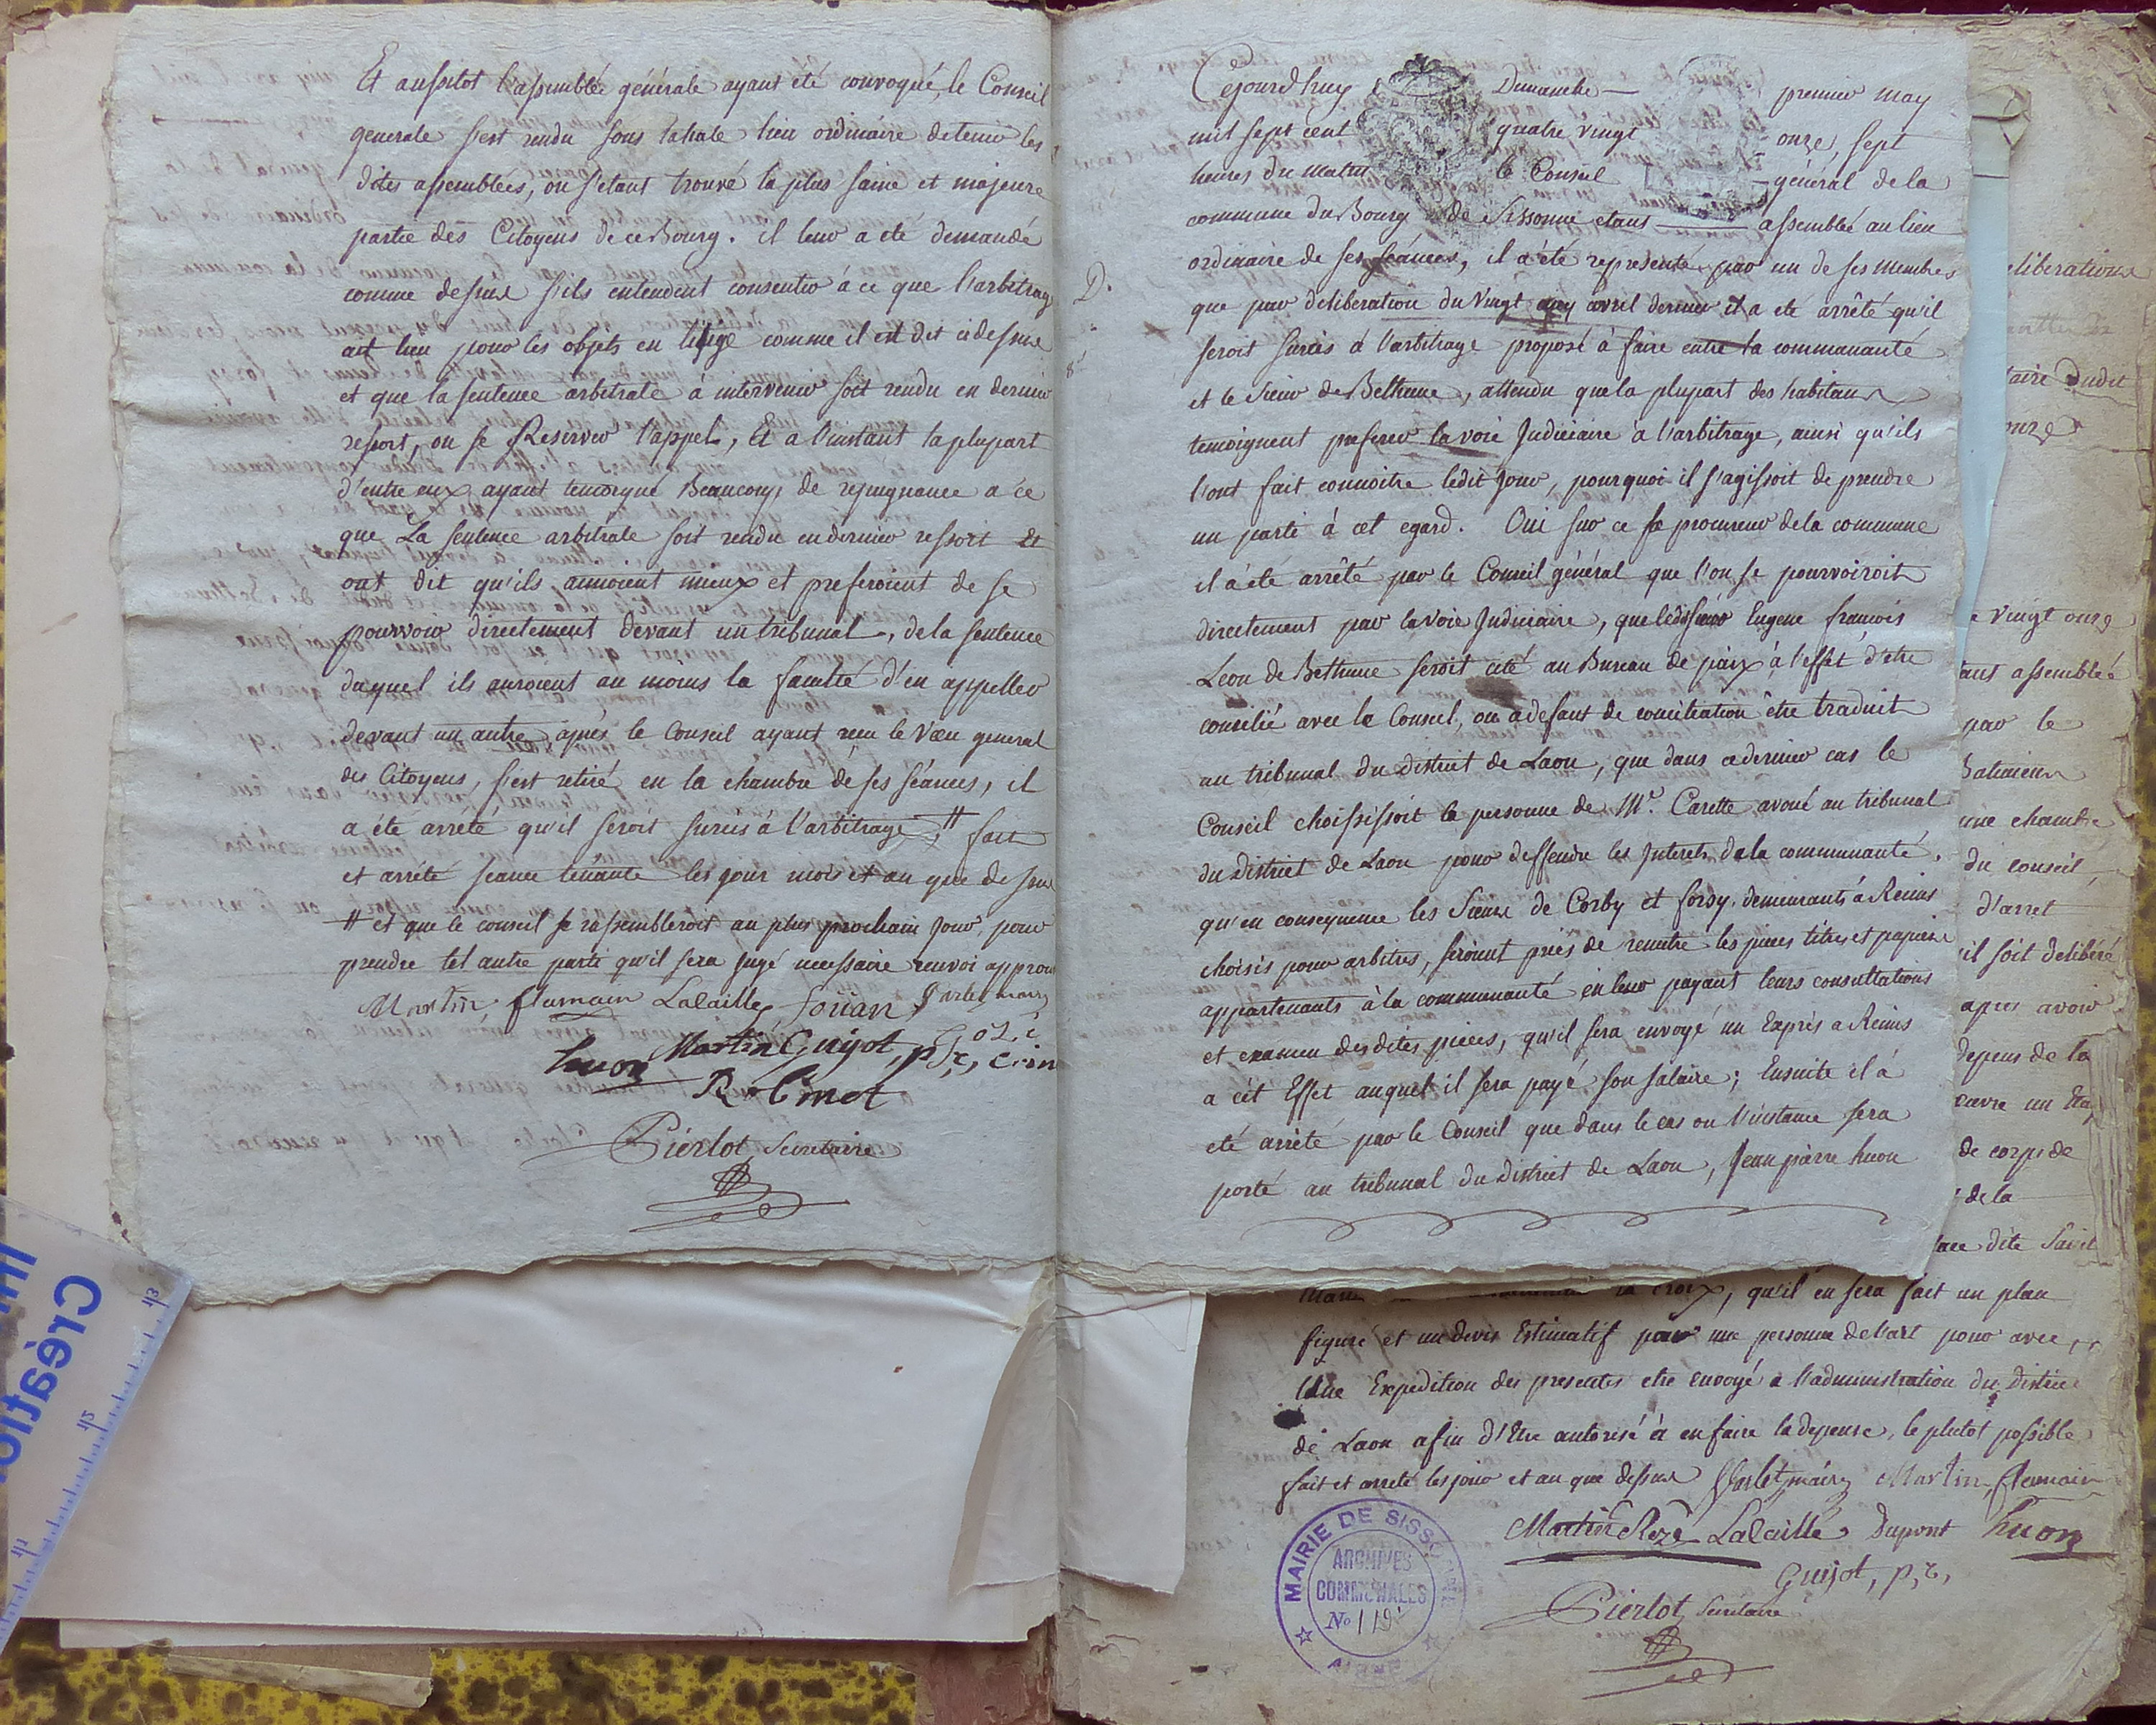 Et aussitot l'assemblée générale ayant été convoqué, le Conseil
generale s'est rendu sous la hale lieu ordinaire de tenir les
dites assemblées, ou s'etant trouvé la plus saine et majeure
partie des Citoyens de ce Bourg. il leur a eté demandé
comme dessus s'ils entendent consentir à ce que l'arbitrage
ait lieu pour les objets en litige comme il est dit cidessus
et que la sentence arbitrale à intervenir soit rendu en dernier
ressort, ou se Reserver l'appel, Et a l'instant la plupart
d'entre eux ayant temoigné Beaucoup de repugnance a ce
que La sentence arbitrale soit rendu en dernier ressort et
ont dit qu'ils aimoient mieux et preferoient de se
pourvoir directement devant un tribunal, de la sentence
duquel ils auroient au moins la faculté d'en appeller
devant un autre, après le Conseil ayant recu le Vœu general
des Citoyens, s'est retiré en la chambre de ses séances, il
a été arreté qu'il seroit surcis à l'arbitrage, # fait
et arrété séance tenante les jour mois et an que dessus
# et que le conseil se rassembleroit au plus prochain jour, pour
prendre tel autre parti qu'il sera jugé necessaire renvoi approu
Martin, flamain Lalaille, fouan, Parlet, maire
huon Martin Guyot, p, c,
Robinet
Pierlot, Secretaire
Cejourd'huy Dimanche premier may
mil sept cent quatre vingt onze, sept
heures du matin le Conseil général de la
commune du Bourg de Sissonne etant assemblé au lieu
ordinaire de ses séances, il a été representé par un de ses membres
D. que par deliberation du Vingt avril dernier il a eté arrêté qu'il
seroit surcis à l'arbitrage proposé à faire entre la communauté
et le Sieur de Bethune, attendu que la plupart des habitans
temoignent preferer la voie Judiciaire à l'arbitrage, ainsi qu'ils
l'ont fait connoitre ledit Jour, pourquoi il s'agissoit de prendre
un parti à cet egard. Oui sur ce le procureur de la commune
il a eté arrêté par le Conseil général que l'on se pourvoiroit
directement par la voie Judiciaire, que ledit sieur Eugene francois
Leon de Bethune seroit cité au Bureau de paix à l'effet d'etre
concilié avec le Conseil, ou a defaut de conciliation être traduit
au tribunal du District de Laon, que dans ce dernier cas le
Conseil choisissoit la personne de Mr. Carette avoué au tribunal
du District de Laon pour deffendre les Interets de la communauté.
qu'en consequence les Sieurs de Corby et forsy, demeurants à Reims
choisis pour arbitres, seroient priés de remettre les pieces titres et papiers
appartenants à la communauté en leur payant leurs consultations
et examen des dites pieces, qu'il sera envoyé un Exprès a Reims
a cét Effet auquel il sera payé son salaire; Ensuite il a
eté arrêté par le Conseil que dans le cas ou l'instance sera
porté au tribunal du District de Laon, Jean pierre huon
eliberations
taire dudit
onze
e vingt onze
ant assemblée
par le
une chambre
du conseil,
d'arret
il soit deliberé
apres avoir
depens de la
de corps de
de la
la croix, qu'il en sera fait un plan
figuré et un devis Estimatif par une personne de l'art pour avec
Une Expedition des presentes etre envoyé à l'administration du District
de Laon afin d'Etre autorisé à en faire la depense, le plutot possible
fait et arreté les jour et an que dessus Parlet, maire, Martin, flamain
Martin Rozé Lalaille, Dupont huon
Guyot, p, c,
Pierlot, Secretaire
MAIRIE DE SISSONNE
ARCHIVES
COMMUNALES
No 119
AISNE
Créatio
43
42
41